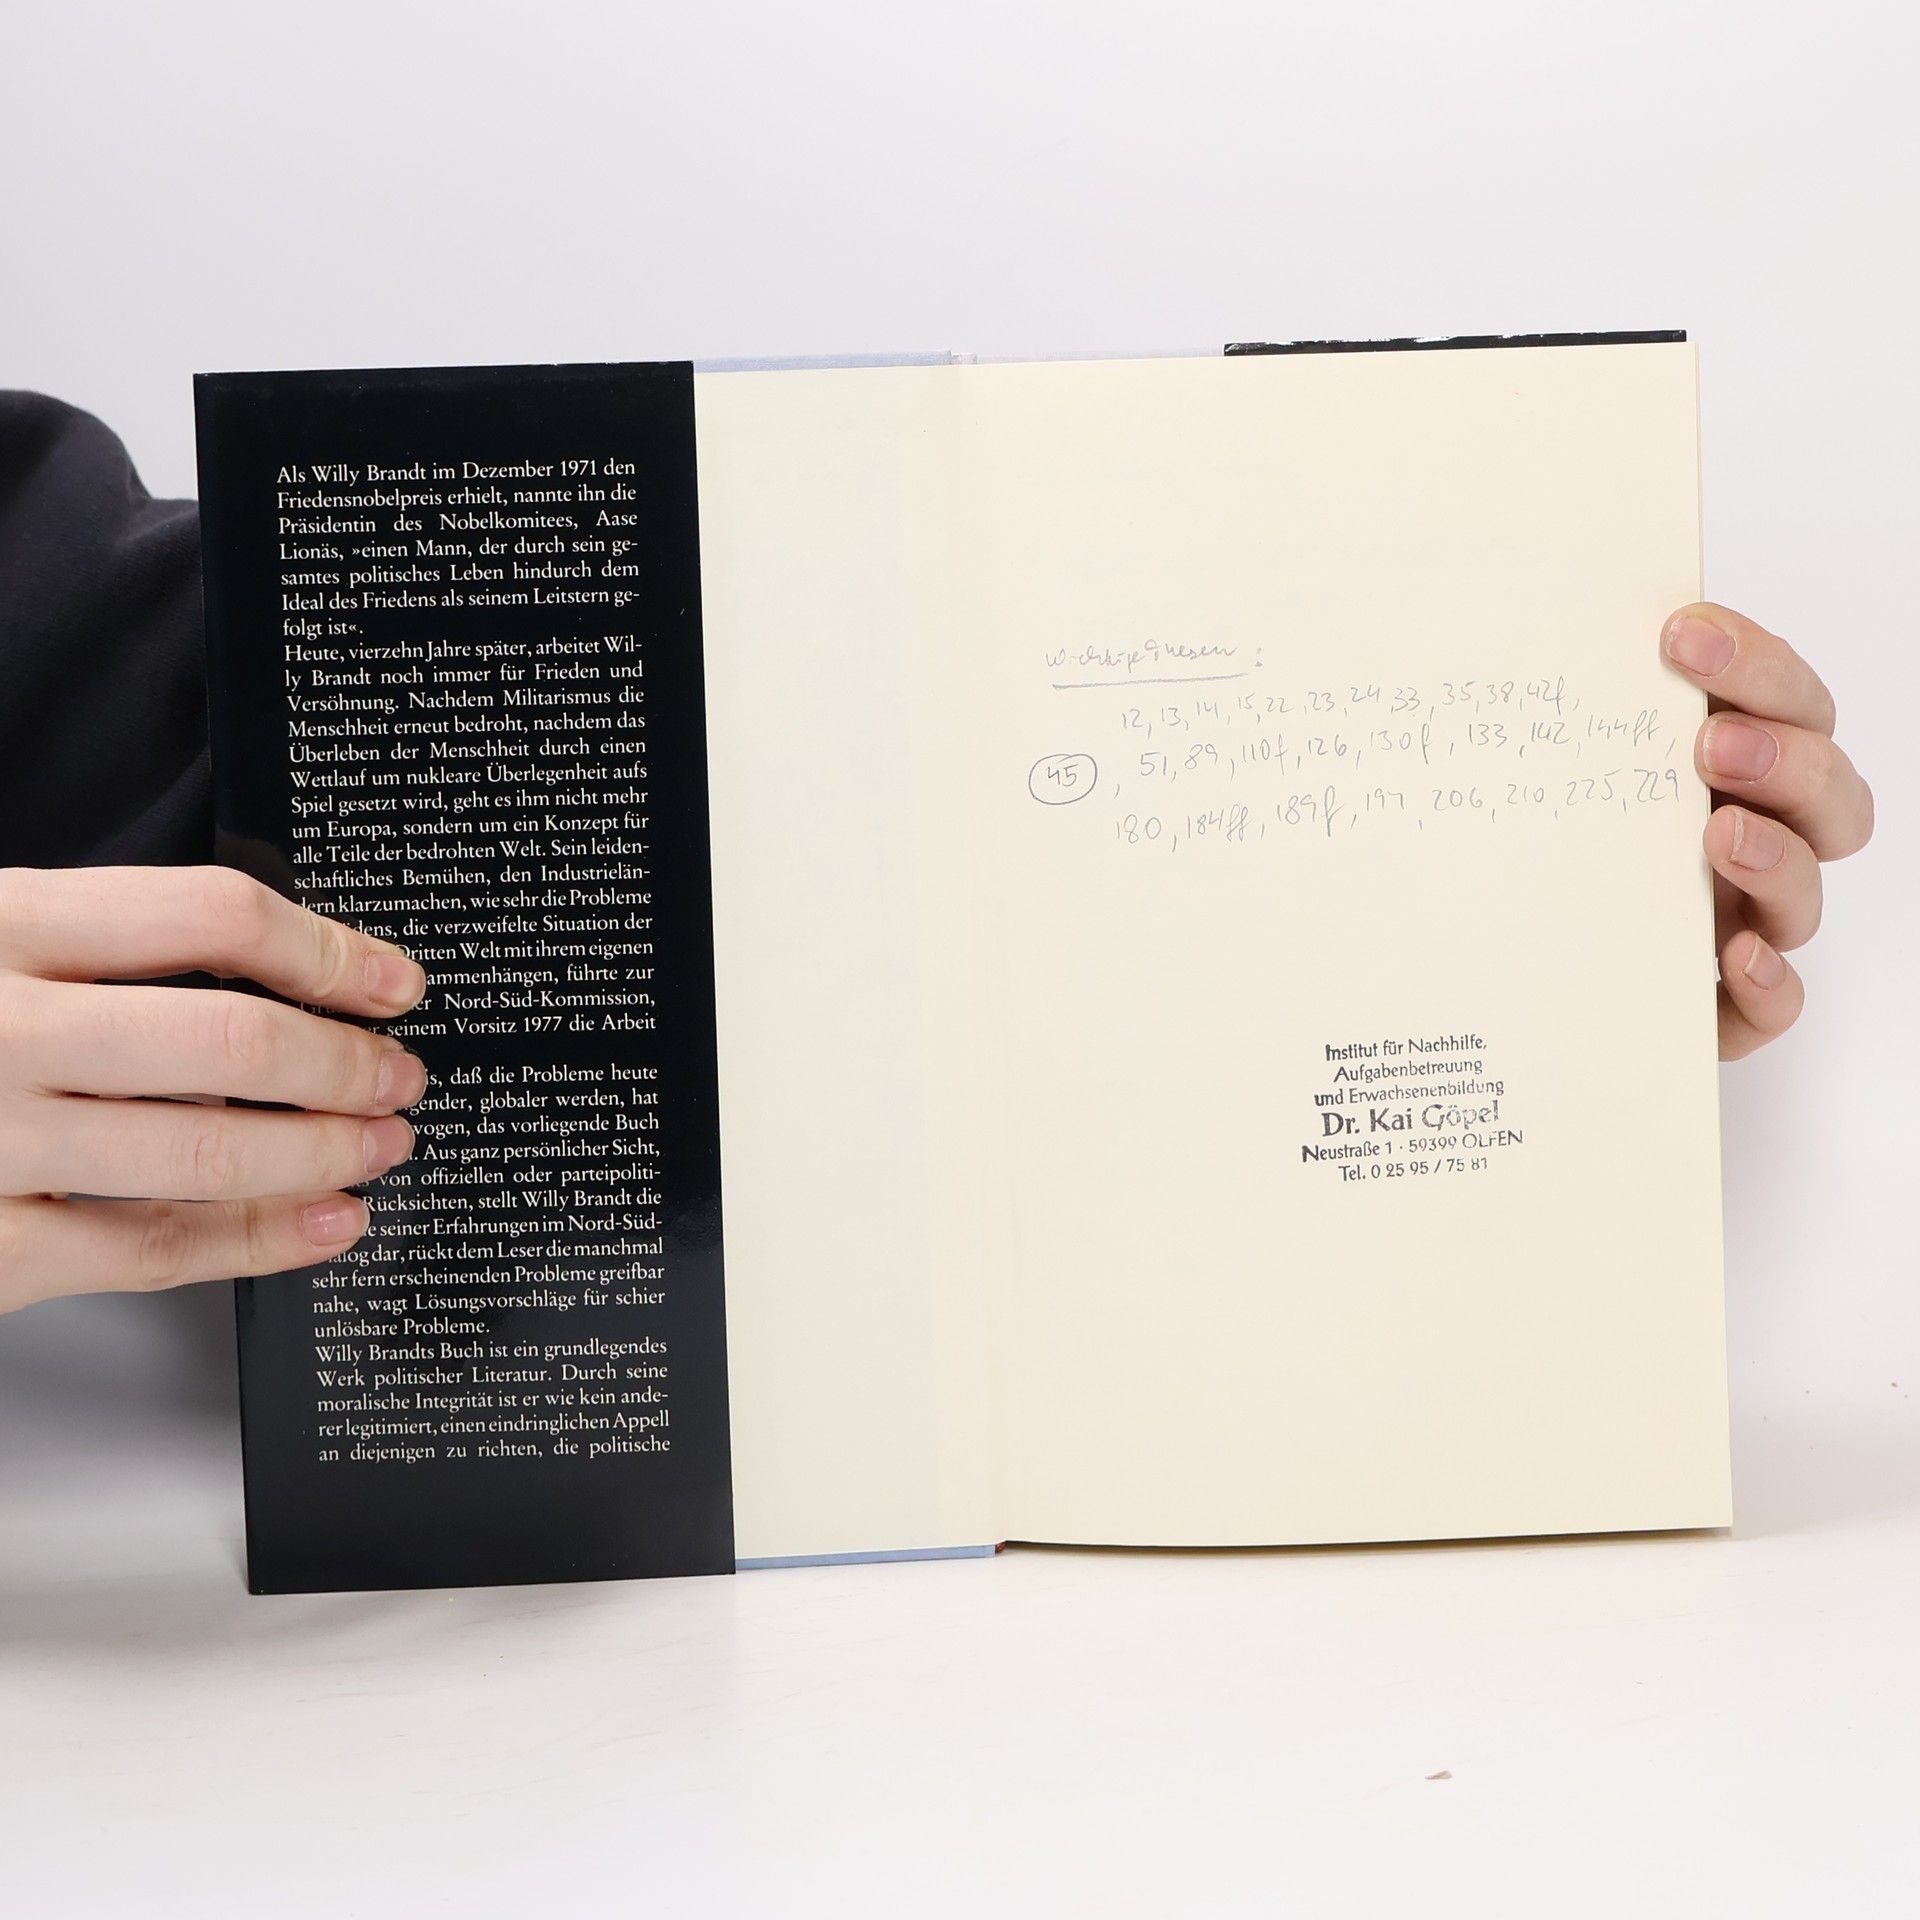 Als Willy Brandt im Dezember 1971 den
Friedensnobelpreis erhielt, nannte ihn die
Präsidentin des Nobelkomitees, Aase
Lionäs, »einen Mann, der durch sein ge-
samtes politisches Leben hindurch dem
Ideal des Friedens als seinem Leitstern ge-
folgt ist«.
Heute, vierzehn Jahre später, arbeitet Wil-
ly Brandt noch immer für Frieden und
Versöhnung. Nachdem Militarismus die
Menschheit erneut bedroht, nachdem das
Überleben der Menschheit durch einen
Wettlauf um nukleare Überlegenheit aufs
Spiel gesetzt wird, geht es ihm nicht mehr
um Europa, sondern um ein Konzept für
alle Teile der bedrohten Welt. Sein leiden-
schaftliches Bemühen, den Industrielän-
dern klarzumachen, wie sehr die Probleme
die verzweifelte Situation der
Dritten Welt mit ihrem eigenen
führte zur
Nord-Süd-Kommission,
seinem Vorsitz 1977 die Arbeit
daß die Probleme heute
globaler werden, hat
das vorliegende Buch
Aus ganz persönlicher Sicht,
von offiziellen oder parteipoliti-
Rücksichten, stellt Willy Brandt die
seiner Erfahrungen im Nord-Süd-
dar, rückt dem Leser die manchmal
sehr fern erscheinenden Probleme greifbar
nahe, wagt Lösungsvorschläge für schier
unlösbare Probleme.
Willy Brandts Buch ist ein grundlegendes
Werk politischer Literatur. Durch seine
moralische Integrität ist er wie kein ande-
rer legitimiert, einen eindringlichen Appell
an diejenigen zu richten, die politische
Wichtige Thesen :
12, 13, 14, 15, 22, 23, 24, 33, 35, 38, 42f,
45, 51, 89, 110f, 126, 130f, 133, 142, 144ff,
180, 184ff, 189f, 197, 206, 210, 225, 229
Institut für Nachhilfe,
Aufgabenbetreuung
und Erwachsenenbildung
Dr. Kai Göpel
Neustraße 1 · 59399 OLFEN
Tel. 0 25 95 / 75 81